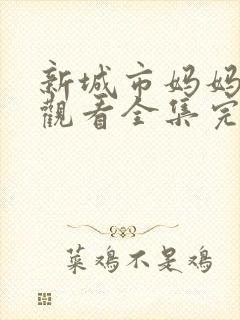 新城市妈妈
觀看全集完
菜鸡不是鸡